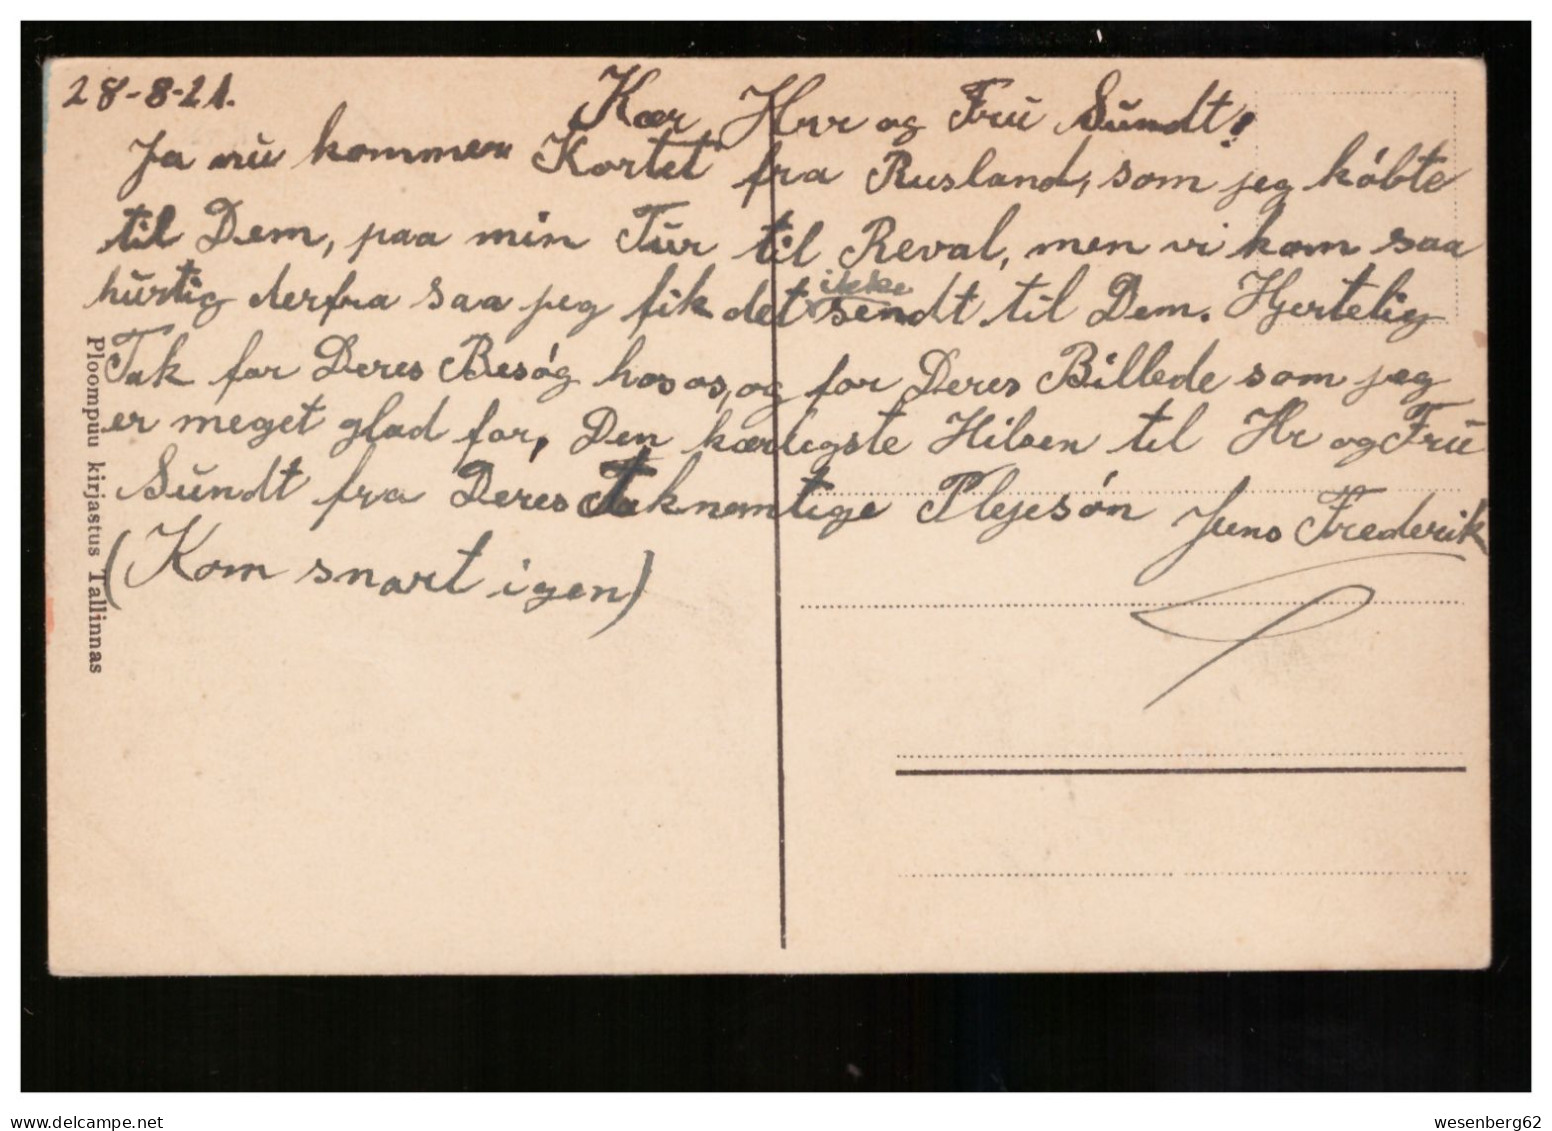 28-8-21.
Kær Hrr og Frú Súndt!
Ja nú kommer Kortet fra Rusland, som jeg kóbte
til Dem, paa min Túr til Reval, men vi kom saa
húrtig derfra saa jeg fik det ikke sendt til Dem. Hjertelig
Tak for Deres Besóg hos os, og for Deres Billede som jeg
er meget glad for, Den kærligste Hilsen til Hr og Frú
Súndt fra Deres Taknemlige Plejesón Jens Frederik
(Kom snart igen)
Ploompuu kirjastus Tallinnas
wesenberg62